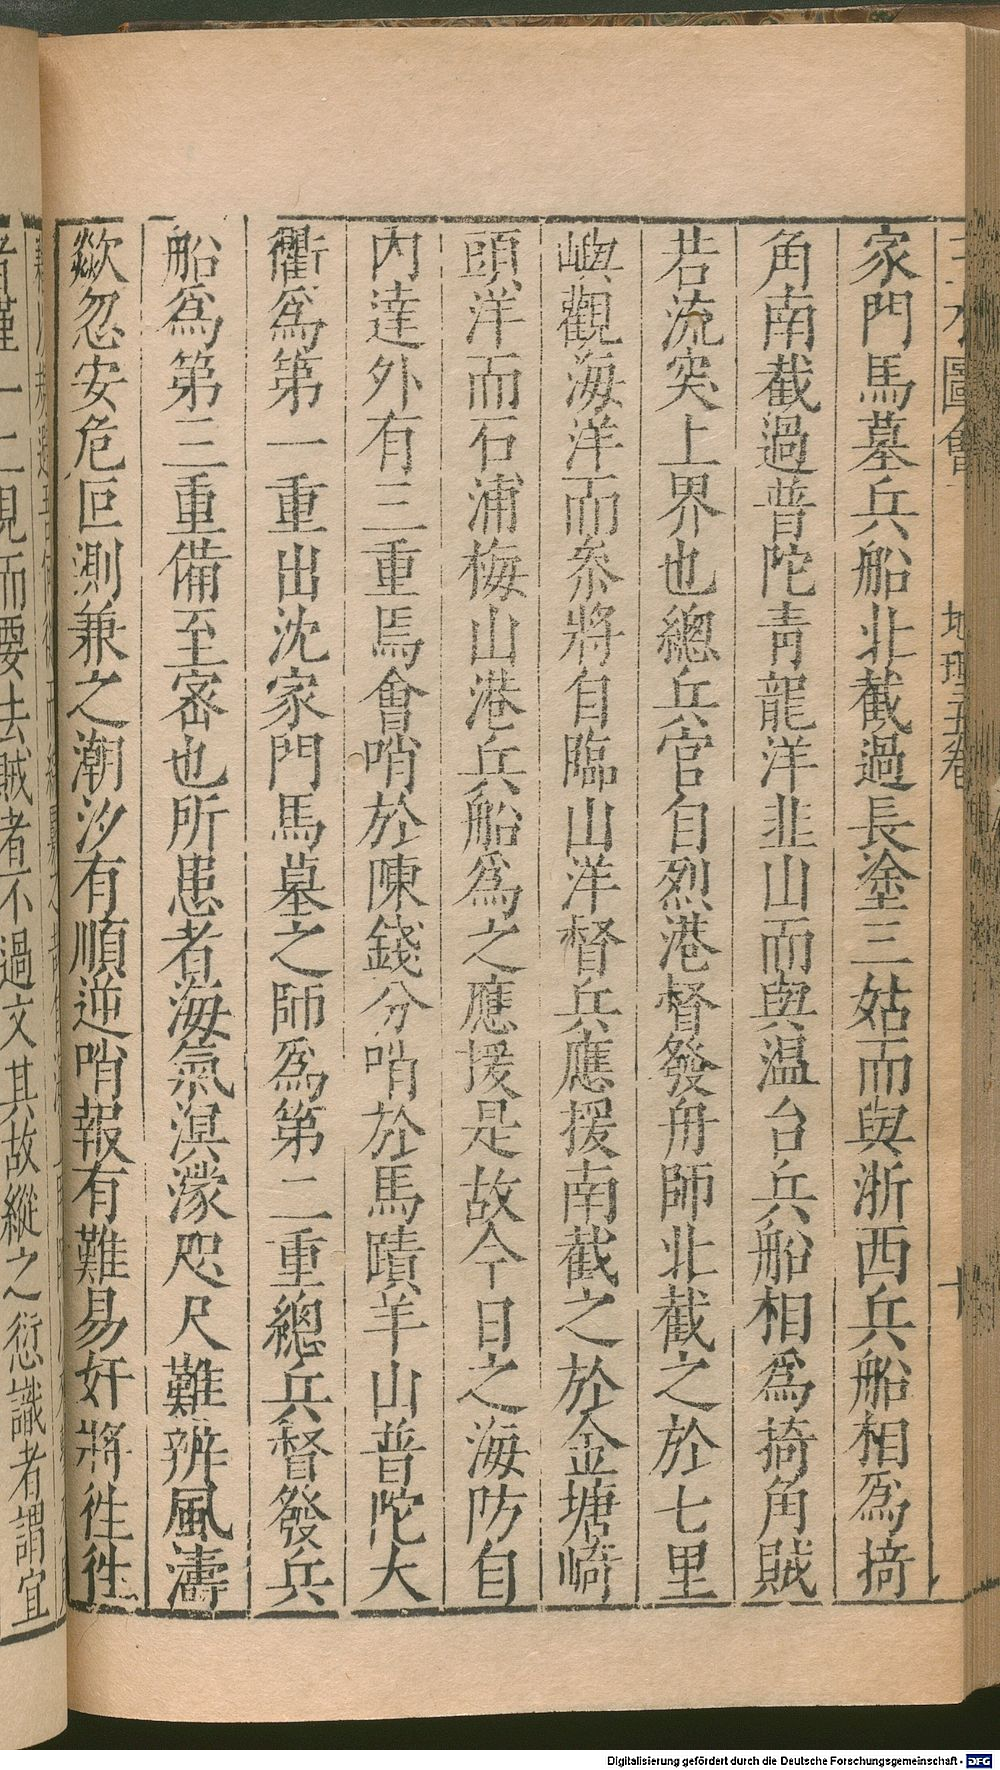 三才圖會 地理五卷 十
家門馬墓兵船北截過長塗三姑而與浙西兵船相爲掎
角南截過普陀青龍洋韭山而與温台兵船相爲掎角賊
若流突上界也總兵官自烈港督發舟師北截之於七里
嶼觀海洋而叅將自臨山洋督兵應援南截之於金塘崎
頭洋而石浦梅山港兵船爲之應援是故今日之海防自
内達外有三重焉會哨於陳錢分哨於馬蹟羊山普陀大
衢爲第一重出沈家門馬墓之師爲第二重總兵督發兵
船爲第三重備至宻也所患者海氣溟濛咫尺難辨風濤
歘忽安危叵測兼之潮汐有順逆哨報有難易奸將徃徃
者謹一二現而要去賊者不過文其故縱之愆識者謂宜
Digitalisierung gefördert durch die Deutsche Forschungsgemeinschaft - DFG